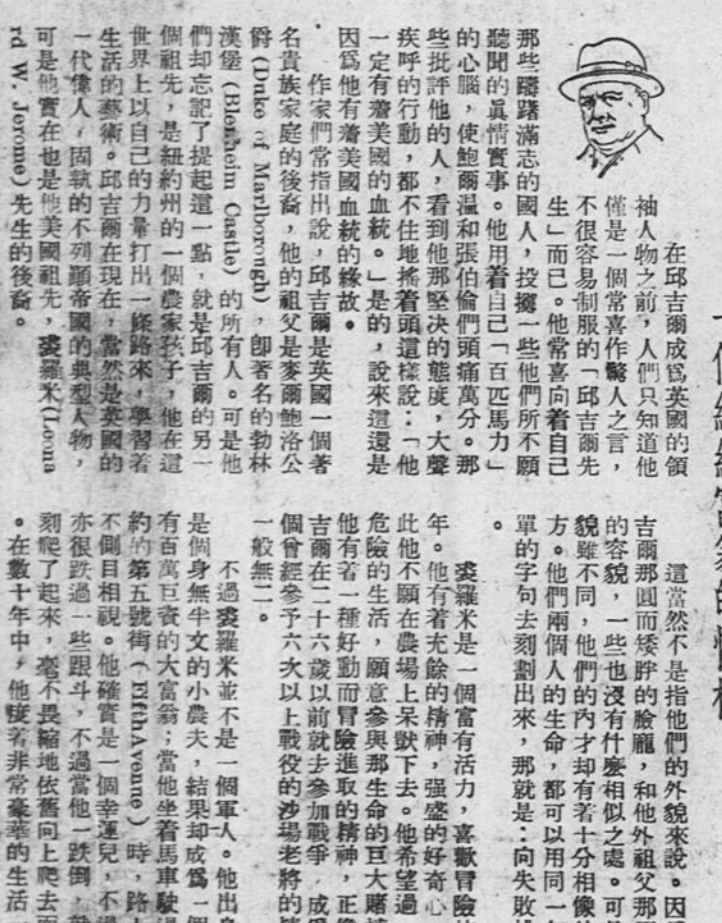 在邱吉爾成爲英國的領
袖人物之前，人們只知道他
僅是一個常喜作驚人之言，
不很容易制服的「邱吉爾先
生」而已。他常喜向着自己
那些躊躇滿志的國人，投擲一些他們所不願
聽聞的眞情實事。他用着自己「百匹馬力」
的心腦，使鮑爾温和張伯倫們頭痛萬分。那
些批評他的人，看到他那堅决的態度，大聲
疾呼的行動，都不住地搖着頭這樣說：「他
一定有着美國的血統。」是的，說來這還是
因爲他有着美國血統的緣故。
作家們常指出說，邱吉爾是英國一個著
名貴族家庭的後裔，他的祖父是麥爾鮑洛公
爵 (Duke of Marlborough)，卽著名的勃林
漢堡 (Blenheim Castle) 的所有人。可是他
們却忘記了提起這一點，就是邱吉爾的另一
個祖先，是紐約州的一個農家孩子，他在這
世界上以自己的力量打出一條路來，學習着
生活的藝術。邱吉爾在現在，當然是英國的
一代偉人，固執的不列顚帝國的典型人物，
可是他實在也是他美國祖先，裘羅米(Leona
rd W. Jerome) 先生的後裔。
這當然不是指他們的外貌來說。因
吉爾那圓而矮胖的臉龐，和他外祖父那
的容貌，一些也沒有什麽相似之處。可
貌雖不同，他們的內才却有着十分相像
方。他們兩個人的生命，都可以用同一
單的字句去刻劃出來，那就是：向失敗
。
裘羅米是一個富有活力，喜歡冒險
年。他有着充餘的精神，强盛的好奇心
此他不願在農場上呆獃下去。他希望過
危險的生活，願意參與那生命的巨大賭
他有着一種好動而冒險進取的精神，正
吉爾在二十六歲以前就去參加戰爭，成
個曾經參予六次以上戰役的沙場老將的
一般無二。
不過裘羅米並不是一個軍人。他出身
是個身無半文的小農夫，結果却成爲一個
有百萬巨資的大富翁；當他坐着馬車駛過
約的第五號街 (Fifth Avenue) 時，路
不側目相視。他確實是一個幸運兒，不過
亦很跌過一些跟斗，不過當他一跌倒，就
刻爬了起來，毫不畏縮地依舊向上爬去
。在數十年中，他度着非常豪華的生活